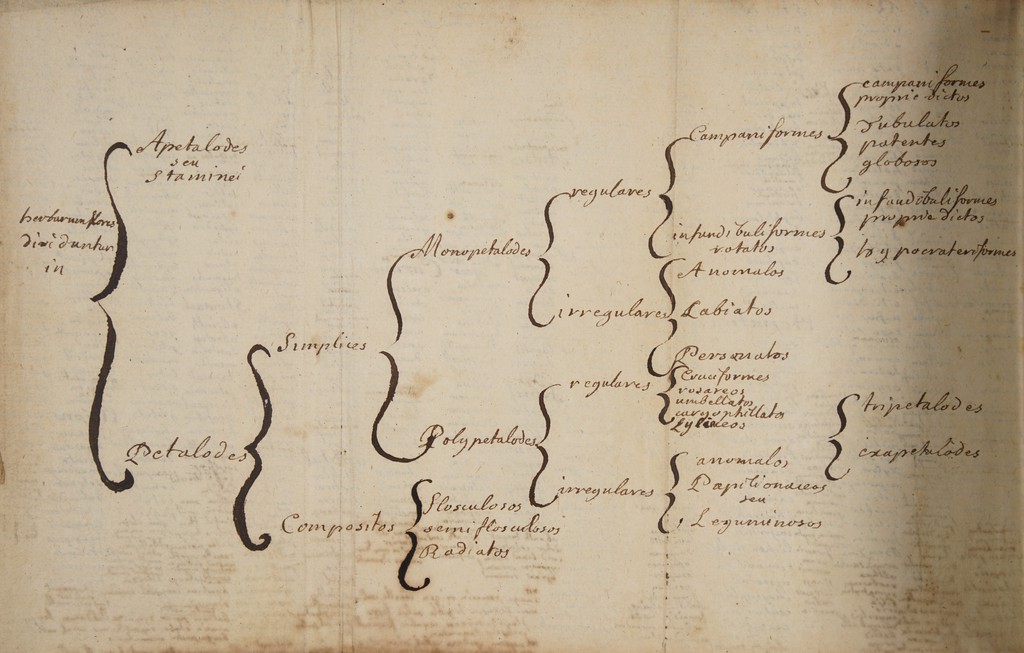 herbarum flores
dividuntur
in
Apetalodes
seu
Staminei
Petalodes
Simplices
Compositos
Monopetalodes
Polypetalodes
flosculosos
semiflosculosos
Radiatos
regulares
irregulares
regulares
irregulares
Campaniformes
infundibuliformes
rotatos
Anomalos
Labiatos
Personatos
Cruciformes
rosareos
umbellatos
caryophillatos
Lylineos
anomalos
Papilionaceos
seu
Leguminosos
campaniformes
proprie dictos
Tubulatos
patentes
globosos
infundibuliformes
proprie dictos
hypocrateriformes
tripetalodes
exapetalodes